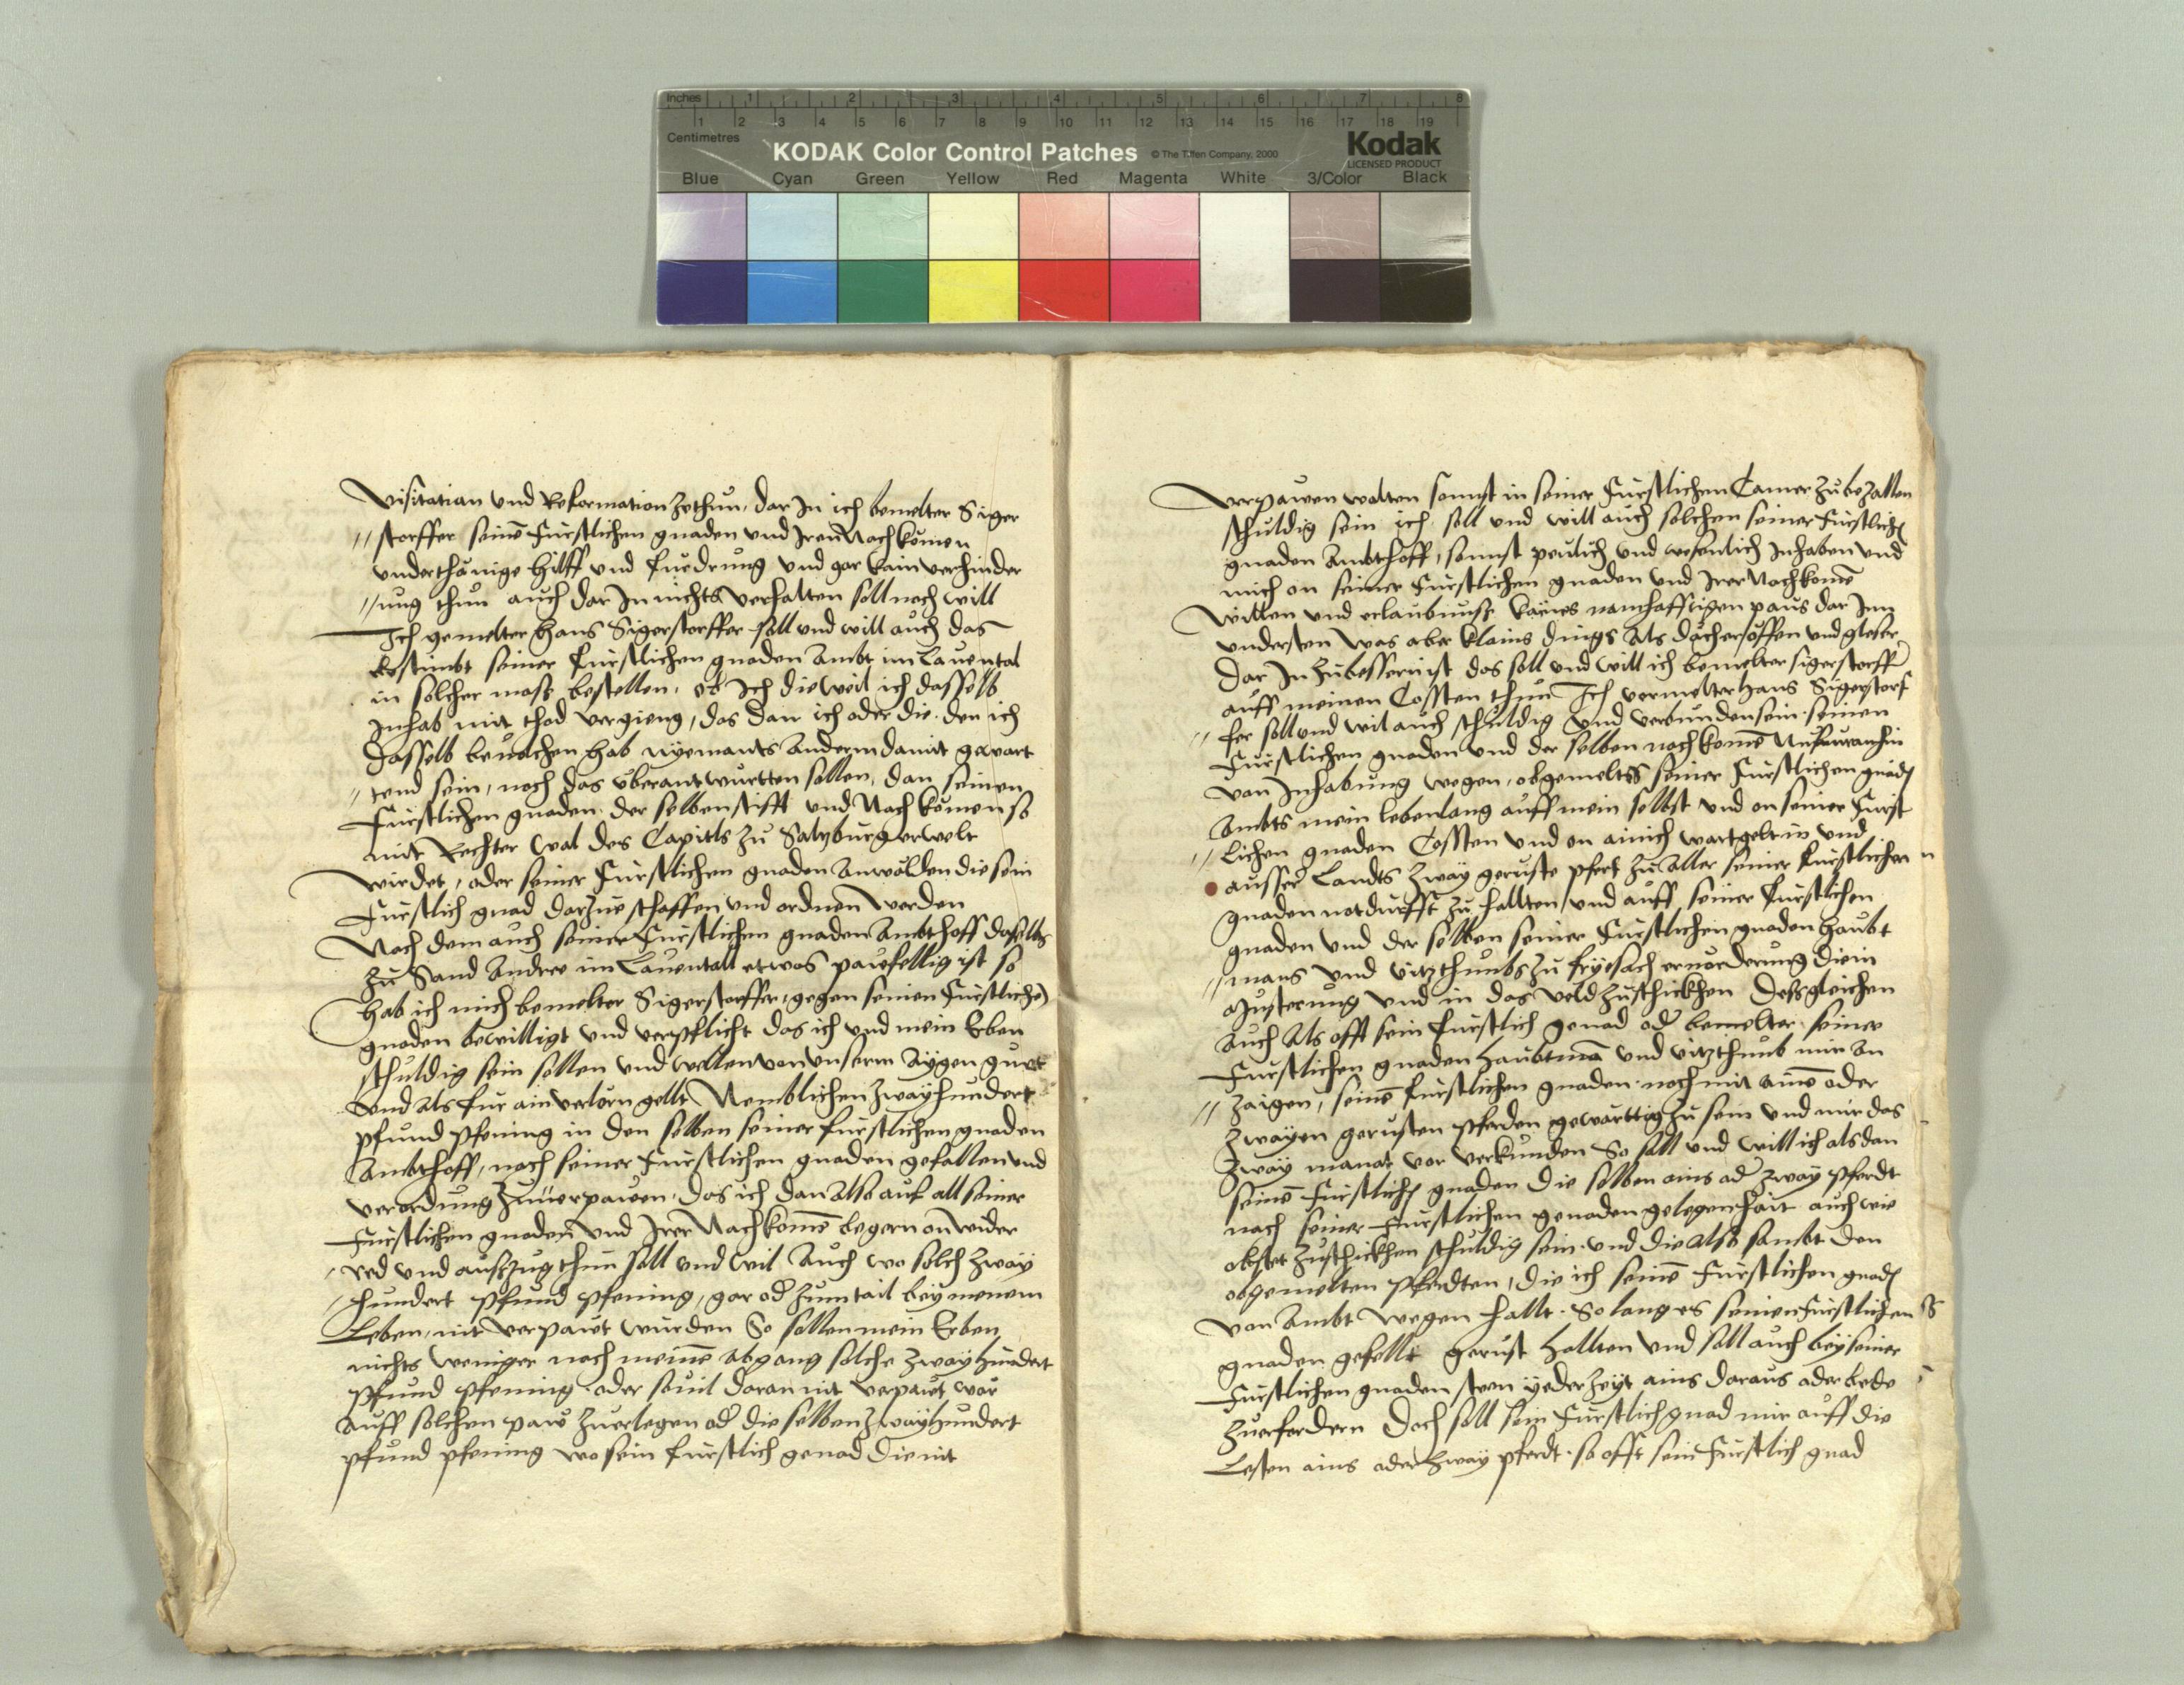 Inches 1 2 3 4 5 6 7 8
1 2 3 4 5 6 7 8 9 10 11 12 13 14 15 16 17 18 19
Centimetres
KODAK Color Control Patches © The Tiffen Company, 2000 Kodak
LICENSED PRODUCT
Blue Cyan Green Yellow Red Magenta White 3/Color Black
Visitatian und Reformation zethun, dar In ich bemelter Siger
// storffer seinē Fürstlichen gnaden und Iren Nachkomen
underthänige hilff und fuedrung und gar kain verhinder
// ung thun auch dar In nichts verhalten soll noch will
Ich gemelter Hans Sigerstorffer soll und will auch das
bestimbt seiner fürstlichen gnaden Ambt im Lavental
in solcher mass bestellen, ob Ich die weil ich dasselb
Inhab mit thod vergieng, das dan ich oder die den ich
dasselb bevolchen hab nyemants anderm damit gewart
// tend sein, noch das überantwurtten sollen, dan seinen
Fürstlichen gnaden der selben stifft und Nachkomen so
mit Rechter wal des Capitls zu Saltzburg erwelt
wirdet, oder seiner Fürstlichen gnaden Anwälden die sein
Fürstlich gnad darzue schaffen und ordnen werden
Nach dem auch seiner Fürstlichen gnaden Ambthoff daselbs
zu Sand Andree im Laventall etwas pawfellig ist so
hab ich mich bemelter Sigerstorffer, gegen seinen Fürstlichē
gnaden bewilligt und verpflicht das ich und mein Erben
schuldig sein sollen und wellen von unserm aygen guet
und als für ain verlorn gellt Nemblichen zwayhundert
pfund pfening in den selben seiner fürstlichen gnaden
Ambthoff, nach seiner Fürstlichen gnaden gefallen und
verordung zuverpawen, das ich dan also auf all seiner
Fürstlichen gnaden und Irer Nachkomē begern on wider
/ red und auszzug thun soll und wil Auch wo solch zway
/ hundert pfund pfening, gar od zum tail bey meinem
Leben, nit verpawt wurden So sollen mein Erben
nichts weniger nach meinē abgang solche zwayhundert
pfund pfening oder sovil daran nit verpawt wär
auff solchen paw zuerlegen od die selben zwayhundert
pfund pfening wo sein fürstlich genad die nit
verpawen wolten sonnst in seiner Fürstlichen Camer zu bezallen
schuldig sein ich soll und will auch solchen seiner Fürstlichn
gnaden Ambthoff, sonnst peulich und wesenlich Inhaben und
mich on seiner Fürstlichen gnaden und Irer Nachkomē
willen und erlaubnuss kaines namhafftigen paus dar Inn
understen was aber klains dings als dächer, öffen und gleser
dar In zubessern ist das soll und will ich bemelter Sigerstorffer
auff meinen Cossten thun Ich vermelter Hans Sigerstorf
// fer soll und wil auch schuldig und verbunden sein seinen
Fürstlichen gnaden und der selben nachkomē
von Inhabung wegen, obgemelts seiner Fürstlichen gnadn
Ambts mein lebenlang auff mein selbst und on seiner Fürst
// lichen gnaden Cossten und on ainich wartgelt in und
ausser Landts zway geruste pferd zu aller seiner fürstlichen
gnaden notdurfft zu hallten, und auff seiner fürstlichen
gnaden und der selben seiner Fürstlichen gnaden haubt
// mans und vitzthumbs zu fryesach ervorderung die in
Musterung und in das veld zuschickhen Dessgleichen
Auch als offt sein fürstlich genad od bemelter seiner
Fürstlichen gnaden haubtmā und vitzthumb mir an
// zaigen, seinē fürstlichen gnaden noch mit ainē oder
zwayen gerusten pferden gewärttig zu sein und mir das
zway monat vor verkünden So soll und will ich als dan
seinē Fürstlichn gnaden die selben ains od zway pferdt
nach seiner Fürstlichen genaden gelegenhait auch wie
obstet zuschickhen schuldig sein und die also sambt den
obgemelten pferdten, die ich seinē Fürstlichen gnadn
von Ambt wegen hallt so lang es seiner Fürstlichen
gnaden gefellt gerust hallten und soll auch bey seiner
Fürstlichen gnaden steen yeder zeyt ains daraus oder bede
zuerfordern Doch soll sein Fürstlich gnad mir auff die
Lesten ains oder zway pferdt so offt sein Fürstlich gnad